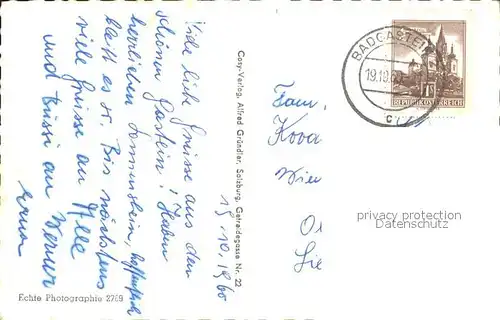 19.10.1960
Viele liebe Grüsse aus dem
schönen Gastein! Haben
herrlichen Sonnenschein, hoffentlich
bleibt es so. Bis nächstens
viele Grüsse an Alle
und Bussi an Werner
Erna
Cosy-Verlag, Alfred Gründler, Salzburg, Getreidegasse Nr. 22
Echte Photographie 2769
BADGASTEIN
19.10.60
1S
REPUBLIK ÖSTERREICH
Fam.
Kova
Wien
privacy protection
Datenschutz